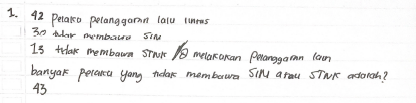 1. 42 Pelaku pelanggaran lalu lintas
30 tidak membawa SIM
15 tidak membawa STNK melakukan Pelanggaran lain
banyak pelaku yang tidak membawa SIM atau STNK adalah?
43